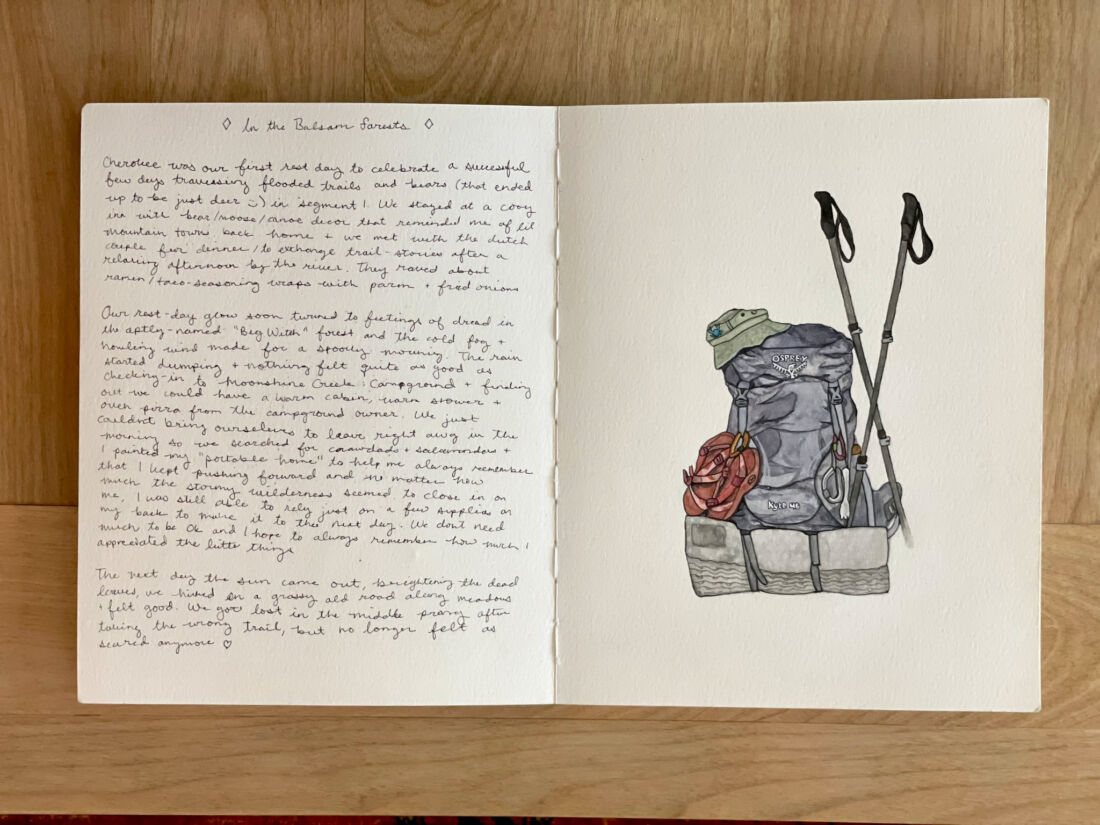 ◇ In the Balsam Forests ◇
Cherokee was our first rest day to celebrate a successful
few days traversing flooded trails and bears (that ended
up to be just deer :)) in segment 1. We stayed at a cozy
inn with bear/moose/canoe decor that reminded me of lil
mountain towns back home + we met with the dutch
couple for dinner/to exchange trail-stories after a
relaxing afternoon by the river. They raved about
ramen/taco-seasoning wraps with parm + fried onions
Our rest-day glow soon turned to feelings of dread in
the aptly-named "Big Witch" forest and the cold fog +
howling wind made for a spooky morning. The rain
started dumping + nothing felt quite as good as
checking-in to Moonshine Creek Campground + finding
out we could have a warm cabin, warm shower +
oven pizza from the campground owner. We just
couldn't bring ourselves to leave right away in the
morning so we searched for crawdads + salamanders +
I painted my "portable home" to help me always remember
that I kept pushing forward and no matter how
much the stormy wilderness seemed to close in on
me, I was still able to rely just on a few supplies on
my back to make it to the next day. We don't need
much to be ok and I hope to always remember how much I
appreciated the little things
The next day the sun came out, brightening the dead
leaves, we hiked on a grassy old road along meadows
+ felt good. We got lost in the middle prong after
taking the wrong trail, but no longer felt as
scared anymore ♡
OSPREY